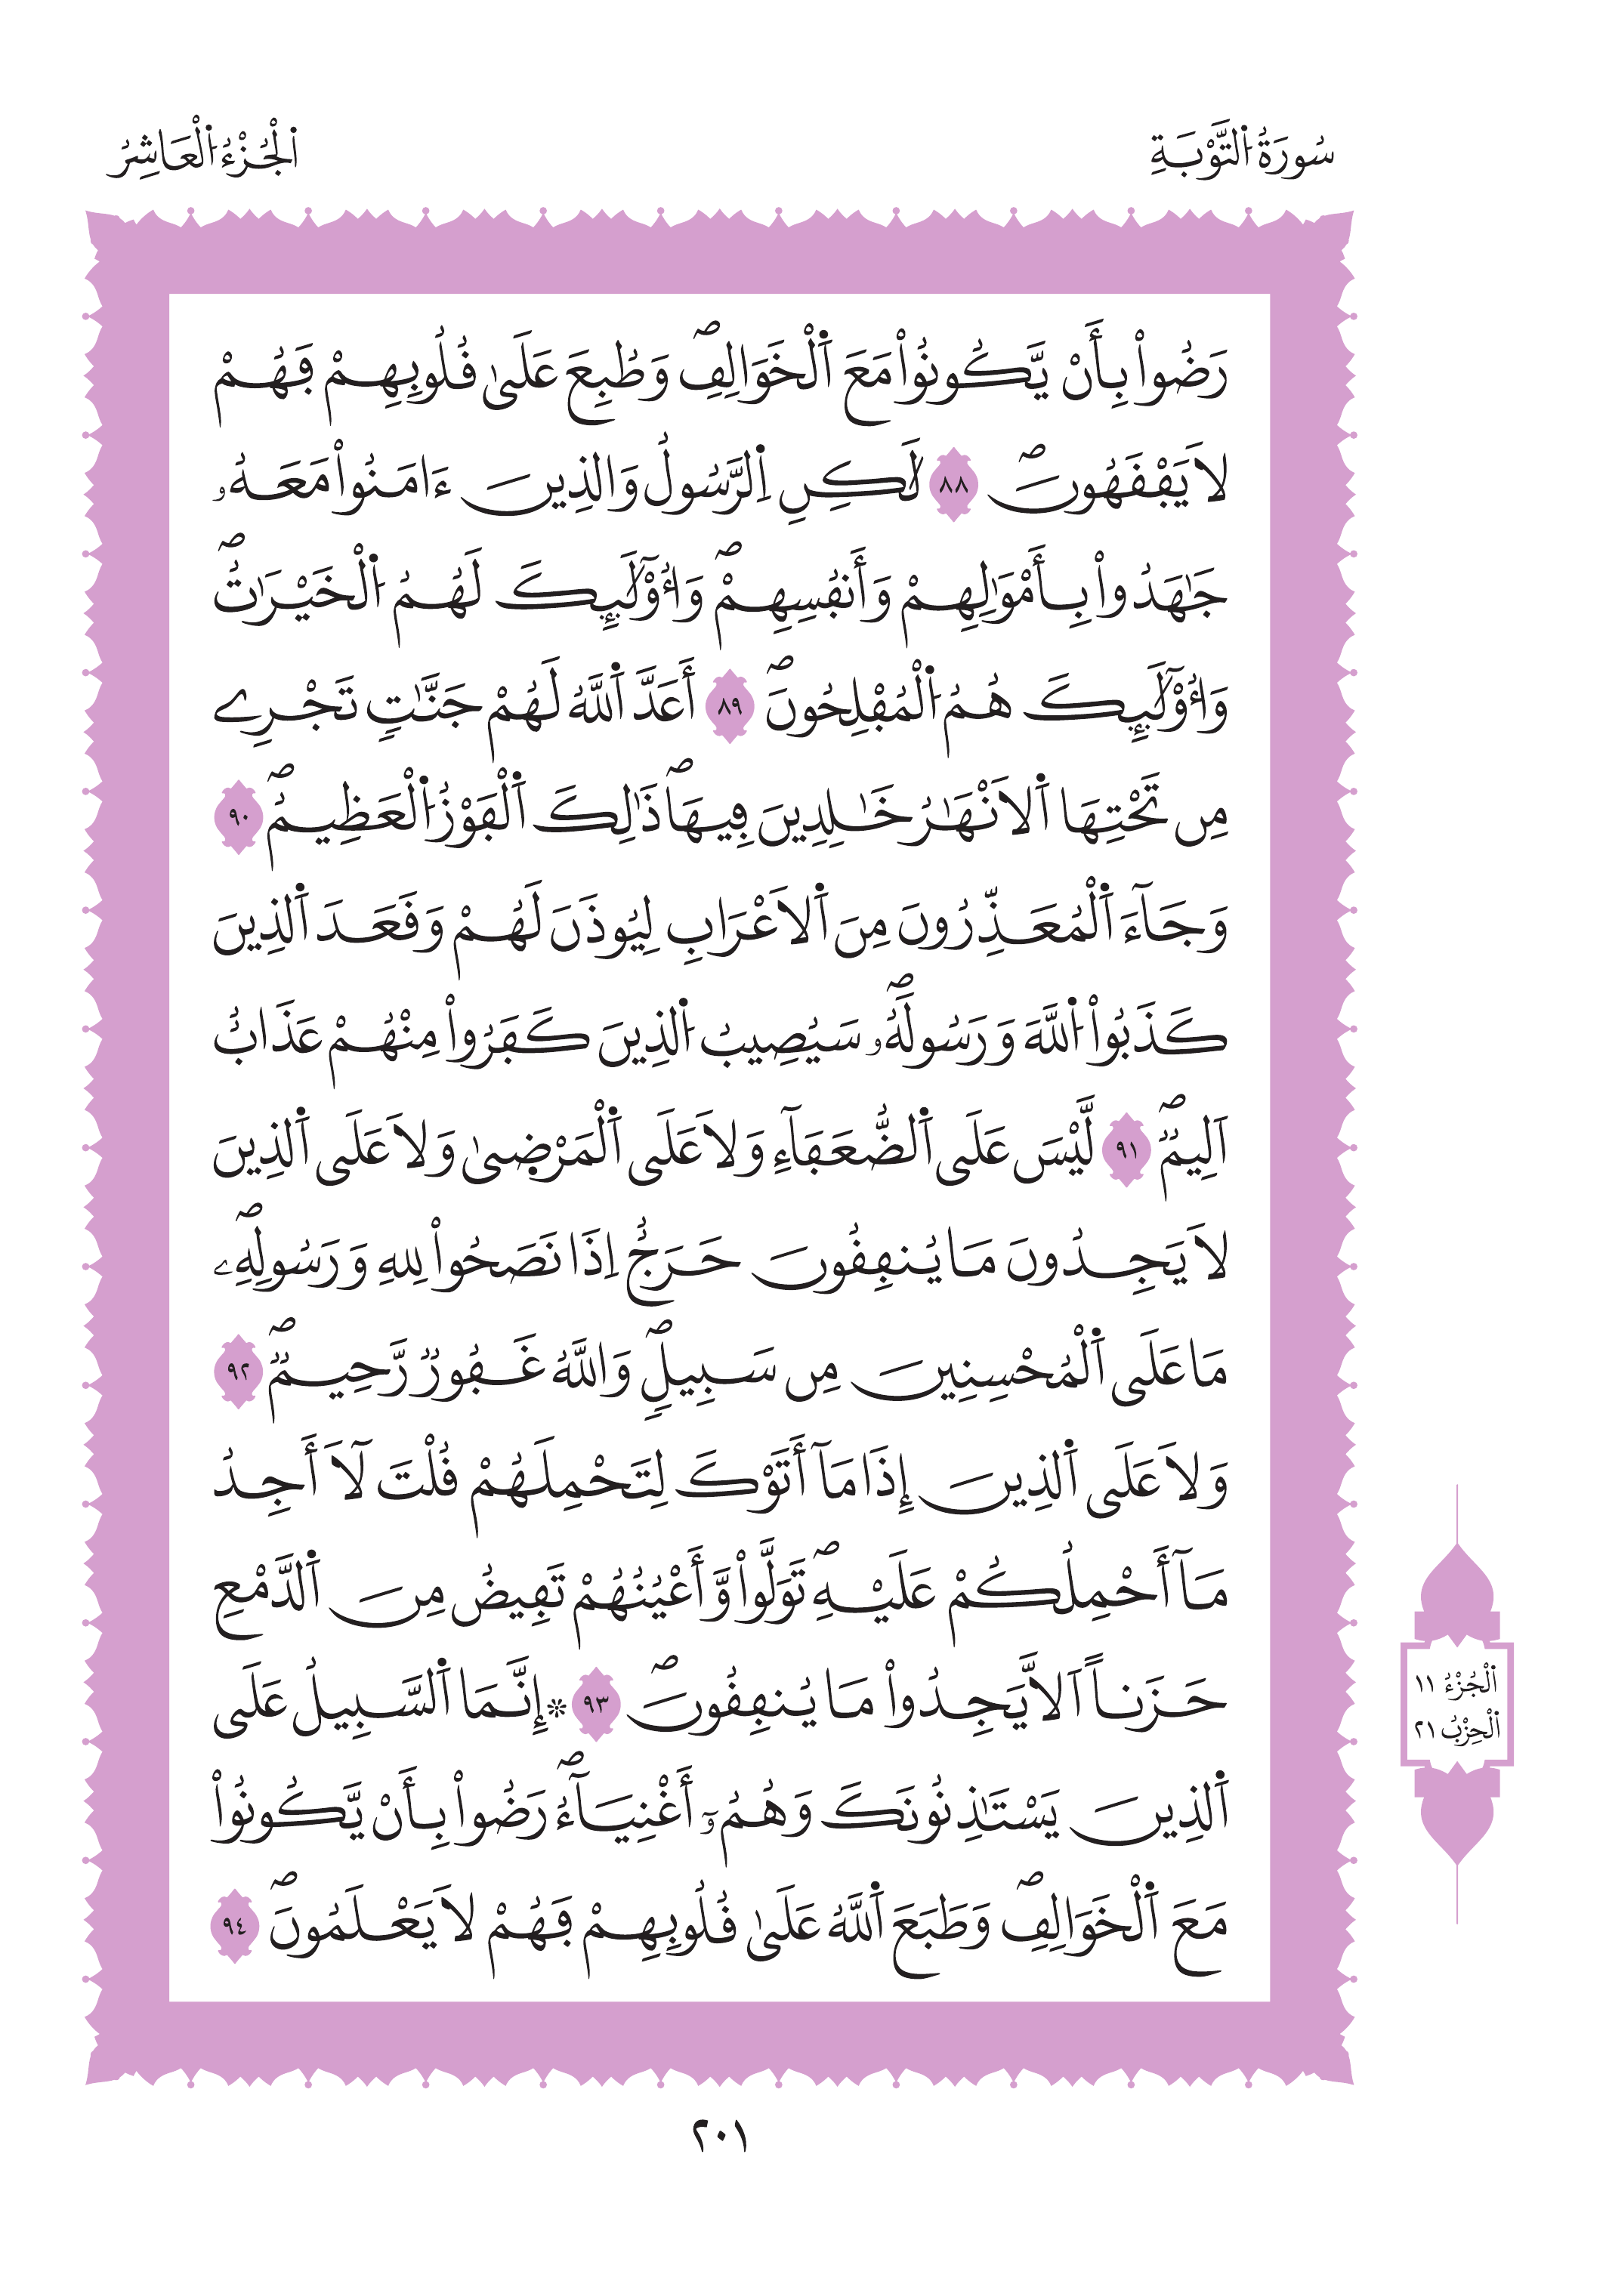 سُورَةُ اُ۬لتَّوْبَةِ
اَ۬لْجُزْءُ اُ۬لْعَاشِرُ
رَضُواْ بِأَنْ يَّكُونُواْ مَعَ اَ۬لْخَوَالِفِۖ وَطُبِعَ عَلَىٰ قُلُوبِهِمْ فَهُمْ
لَا يَفْقَهُونَۖ ٨٨ لَٰكِنِ اِ۬لرَّسُولُ وَالذِينَ ءَامَنُواْ مَعَهُۥ
جَٰهَدُواْ بِأَمْوَٰلِهِمْ وَأَنفُسِهِمْۖ وَأُوْلَٰٓئِكَ لَهُمُ اُ۬لْخَيْرَٰتُۖ
وَأُوْلَٰٓئِكَ هُمُ اُ۬لْمُفْلِحُونَۖ ٨٩ أَعَدَّ اَ۬للَّهُ لَهُمْ جَنَّٰتٖ تَجْرِے
مِن تَحْتِهَا اَ۬لَانْهَٰرُ خَٰلِدِينَ فِيهَاۖ ذَٰلِكَ اَ۬لْفَوْزُ اُ۬لْعَظِيمُۖ ٩٠
وَجَآءَ اَ۬لْمُعَذِّرُونَ مِنَ اَ۬لَاعْرَابِ لِيُوذَنَ لَهُمْ وَقَعَدَ اَ۬لذِينَ
كَذَبُواْ اُ۬للَّهَ وَرَسُولَهُۥۖ سَيُصِيبُ اُ۬لذِينَ كَفَرُواْ مِنْهُمْ عَذَابٌ
اَلِيمٞۖ ٩١ لَّيْسَ عَلَى اَ۬لضُّعَفَآءِ وَلَا عَلَى اَ۬لْمَرْضۭىٰ وَلَا عَلَى اَ۬لذِينَ
لَا يَجِدُونَ مَا يُنفِقُونَ حَرَجٌ اِذَا نَصَحُواْ لِلهِ وَرَسُولِهِۦۖ
مَا عَلَى اَ۬لْمُحْسِنِينَ مِن سَبِيلٖۖ وَاللَّهُ غَفُورٞ رَّحِيمٞۖ ٩٢
وَلَا عَلَى اَ۬لذِينَ إِذَا مَآ أَتَوْكَ لِتَحْمِلَهُمْ قُلْتَ لَآ أَجِدُ
مَآ أَحْمِلُكُمْ عَلَيْهِۖ تَوَلَّواْ وَّأَعْيُنُهُمْ تَفِيضُ مِنَ اَ۬لدَّمْعِ
حَزَناً اَلَّا يَجِدُواْ مَا يُنفِقُونَۖ ٩٣ ۞إِنَّمَا اَ۬لسَّبِيلُ عَلَى
اَ۬لذِينَ يَسْتَٰذِنُونَكَ وَهُمُۥٓ أَغْنِيَآءُۖ رَضُواْ بِأَنْ يَّكُونُواْ
مَعَ اَ۬لْخَوَالِفِۖ وَطَبَعَ اَ۬للَّهُ عَلَىٰ قُلُوبِهِمْ فَهُمْ لَا يَعْلَمُونَۖ ٩٤
اَ۬لْجُزْءُ ١١
اَ۬لْحِزْبُ ٢١
٢٠١